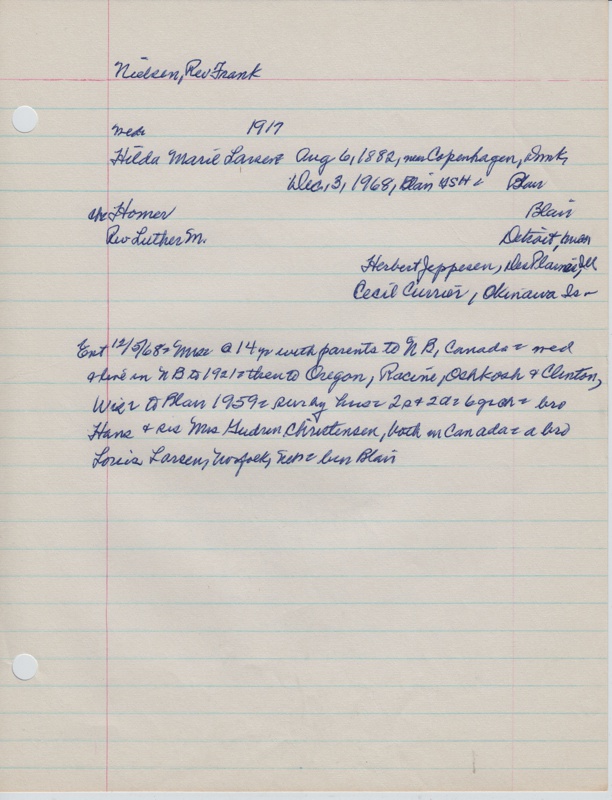 Nielsen, Rev Frank
wed. 1917
Hilda Marie Larsen Aug 6, 1882, near Copenhagen, Dmk,
Dec, 3, 1968, Blair Blair
ch: Homer Blair
Rev Luther M. Detroit,
Herbert Jeppesen, Des Plaines, Ill
Cecil Currier, Okinawa Is
Ent 12/5/68 = @ 14 yr with parents to N B, Canada = wed
there in N B to 1921 = then to Oregon, Racine, Oshkosh & Clinton,
Wis = to Blair 1959 = sur by hus = 2s & 2d = 6 grch = bro
Hans & sis Mrs Gudrun Christensen, both in Canada = a bro
Louis Larsen, Norfolk, Neb = bur Blair